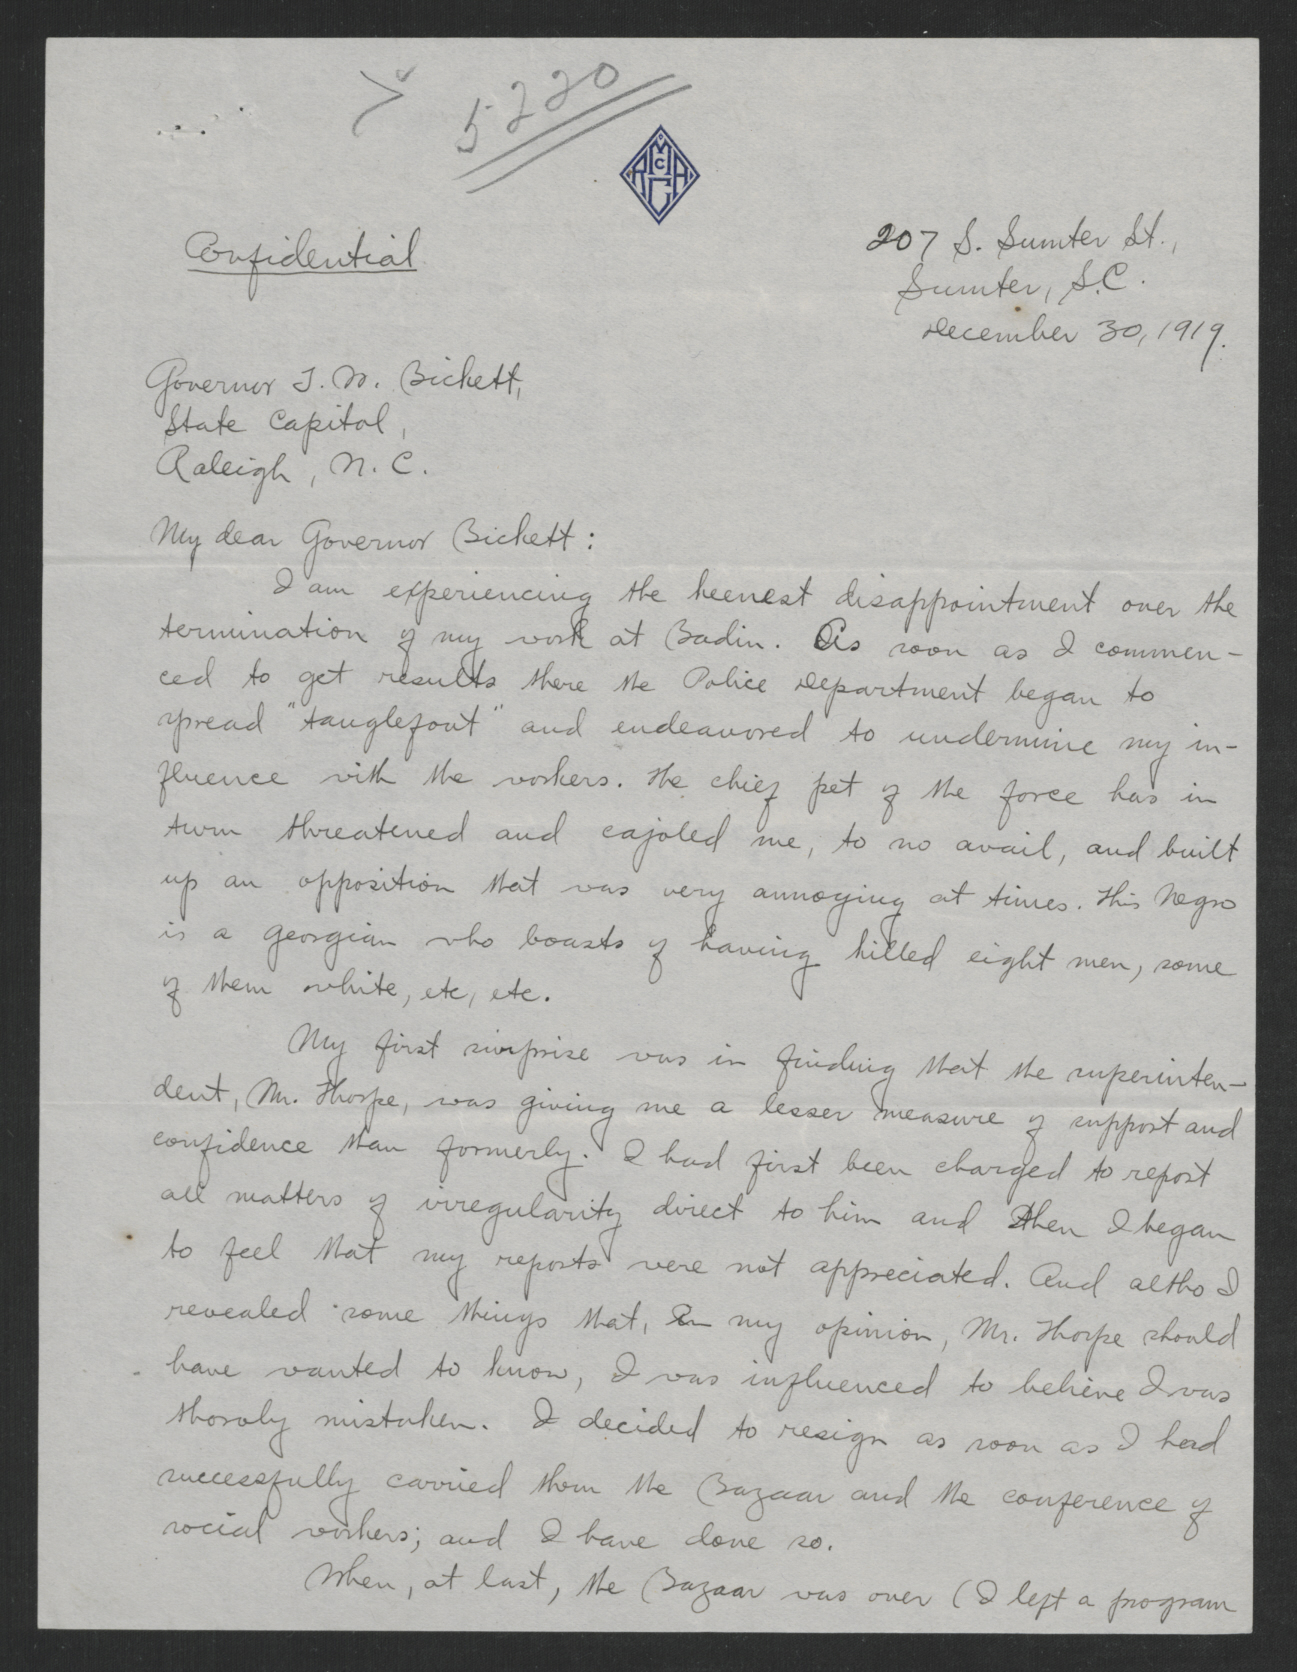 5220
Confidential
207 S. Sumter St.,
Sumter, S.C.
December 30, 1919.
Governor T. W. Bickett,
State Capitol,
Raleigh, N. C.
My dear Governor Bickett:
I am experiencing the keenest disappointment over the
termination of my work at Badin. As soon as I commen-
ced to get results there the Police Department began to
spread "tanglefoot" and endeavored to undermine my in-
fluence with the workers. The chief pet of the force has in
turn threatened and cajoled me, to no avail, and built
up an opposition that was very annoying at times. This Negro
is a Georgian who boasts of having killed eight men, some
of them white, etc, etc.
My first surprise was in finding that the superinten-
dent, Mr. Thorpe, was giving me a lesser measure of support and
confidence than formerly. I had first been charged to report
all matters of irregularity direct to him and then I began
to feel that my reports were not appreciated. And altho I
revealed some things that, in my opinion, Mr. Thorpe should
have wanted to know, I was influenced to believe I was
thoroly mistaken. I decided to resign as soon as I had
successfully carried thru the Bazaar and the conference of
social workers; and I have done so.
When, at last, the Bazaar was over (I left a program